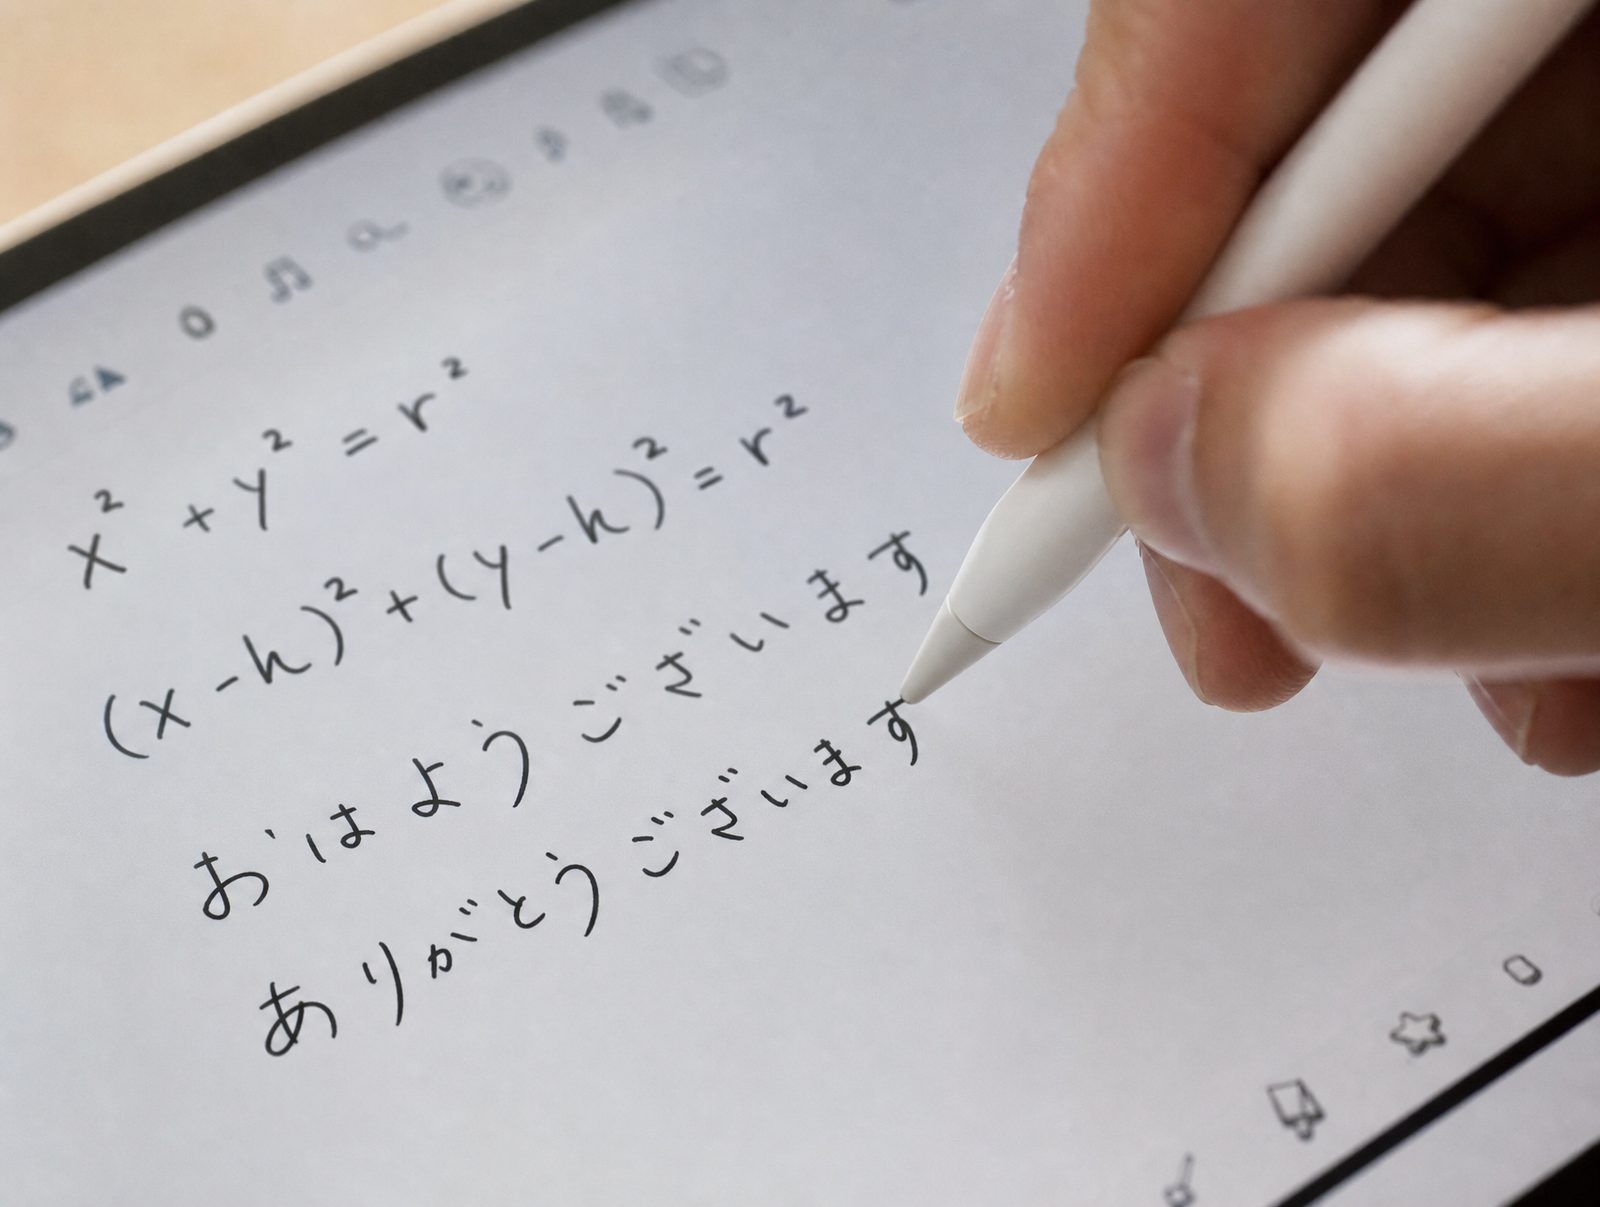 x² + y² = r²
(x - h)² + (y - h)² = r²
おはようございます
ありがとうございます